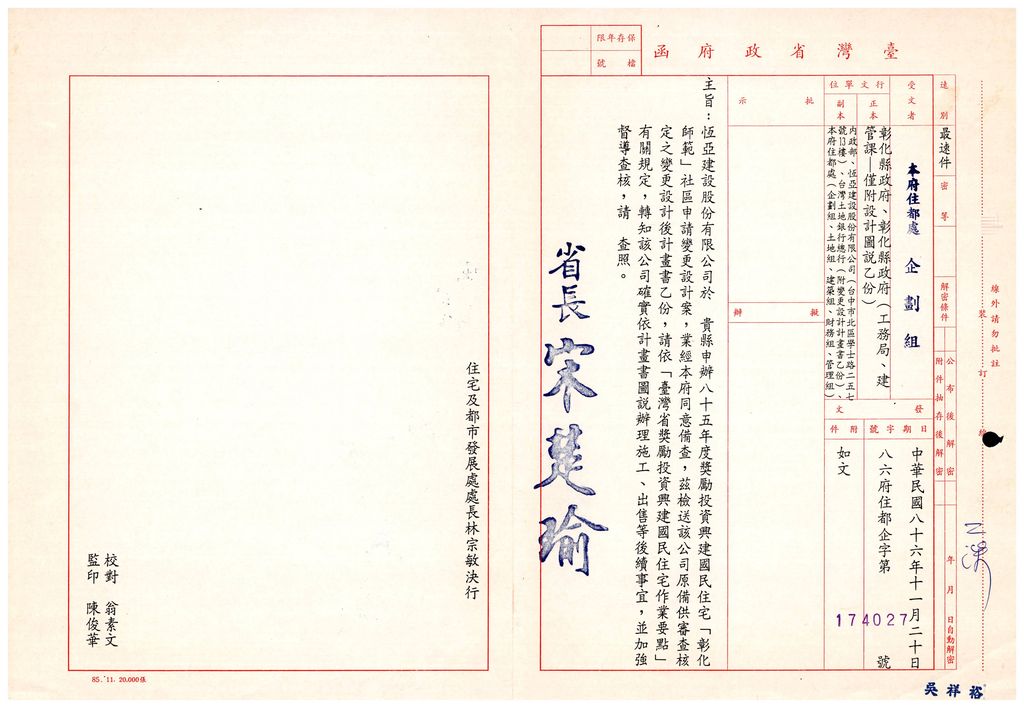 臺灣省政府函
保存年限
檔號
速別
最速件
密等
解密條件
公布後解密
附件抽存後解密
年 月 日自動解密
受文者
本府住都處 企劃組
行文單位
正本
彰化縣政府、彰化縣政府(工務局、建
管課—僅附設計圖説乙份)
副本
內政部、恆亞建設股份有限公司(台中市北區學士路二五七
號13樓)、台灣土地銀行總行(附變更設計計畫書乙份)、
本府住都處(企劃組、土地組、建築組、財務組、管理組)
發文
日期
中華民國八十六年十一月二十日
字號
八六府住都企字第 174027 號
附件
如文
批示
擬辦
主旨:恆亞建設股份有限公司於 貴縣申辦八十五年度獎勵投資興建國民住宅「彰化
師範」社區申請變更設計案,業經本府同意備查,茲檢送該公司原備供審查核
定之變更設計後計畫書乙份,請依「臺灣省獎勵投資興建國民住宅作業要點」
有關規定,轉知該公司確實依計畫書圖説辦理施工、出售等後續事宜,並加強
督導查核,請 查照。
省長 宋楚瑜
線外請勿批註
裝 訂 線
吳祥裕
住宅及都市發展處處長林宗敏決行
校對 翁素文
監印 陳俊華
85.˝11. 20,000張